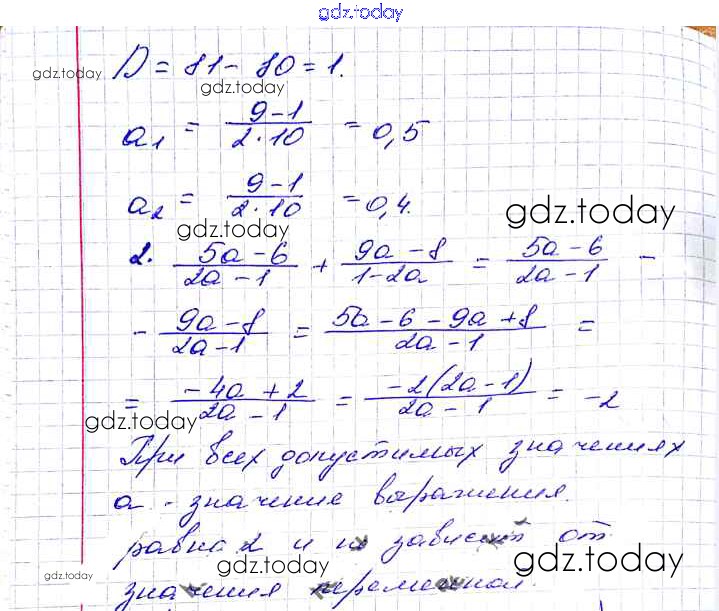 gdz.today
D = 81 - 80 = 1.
gdz.today
gdz.today
a₁ = (9-1)/(2·10) = 0,5
a₂ = (9-1)/(2·10) = 0,4.
gdz.today
gdz.today
2. (5a-6)/(2a-1) + (9a-8)/(1-2a) = (5a-6)/(2a-1) -
- (9a-8)/(2a-1) = (5a-6-9a+8)/(2a-1) =
= (-4a+2)/(2a-1) = (-2(2a-1))/(2a-1) = -2
gdz.today
При всех допустимых значениях
a - значение выражения.
равна 2 и не зависит от
gdz.today
gdz.today
значения переменной.